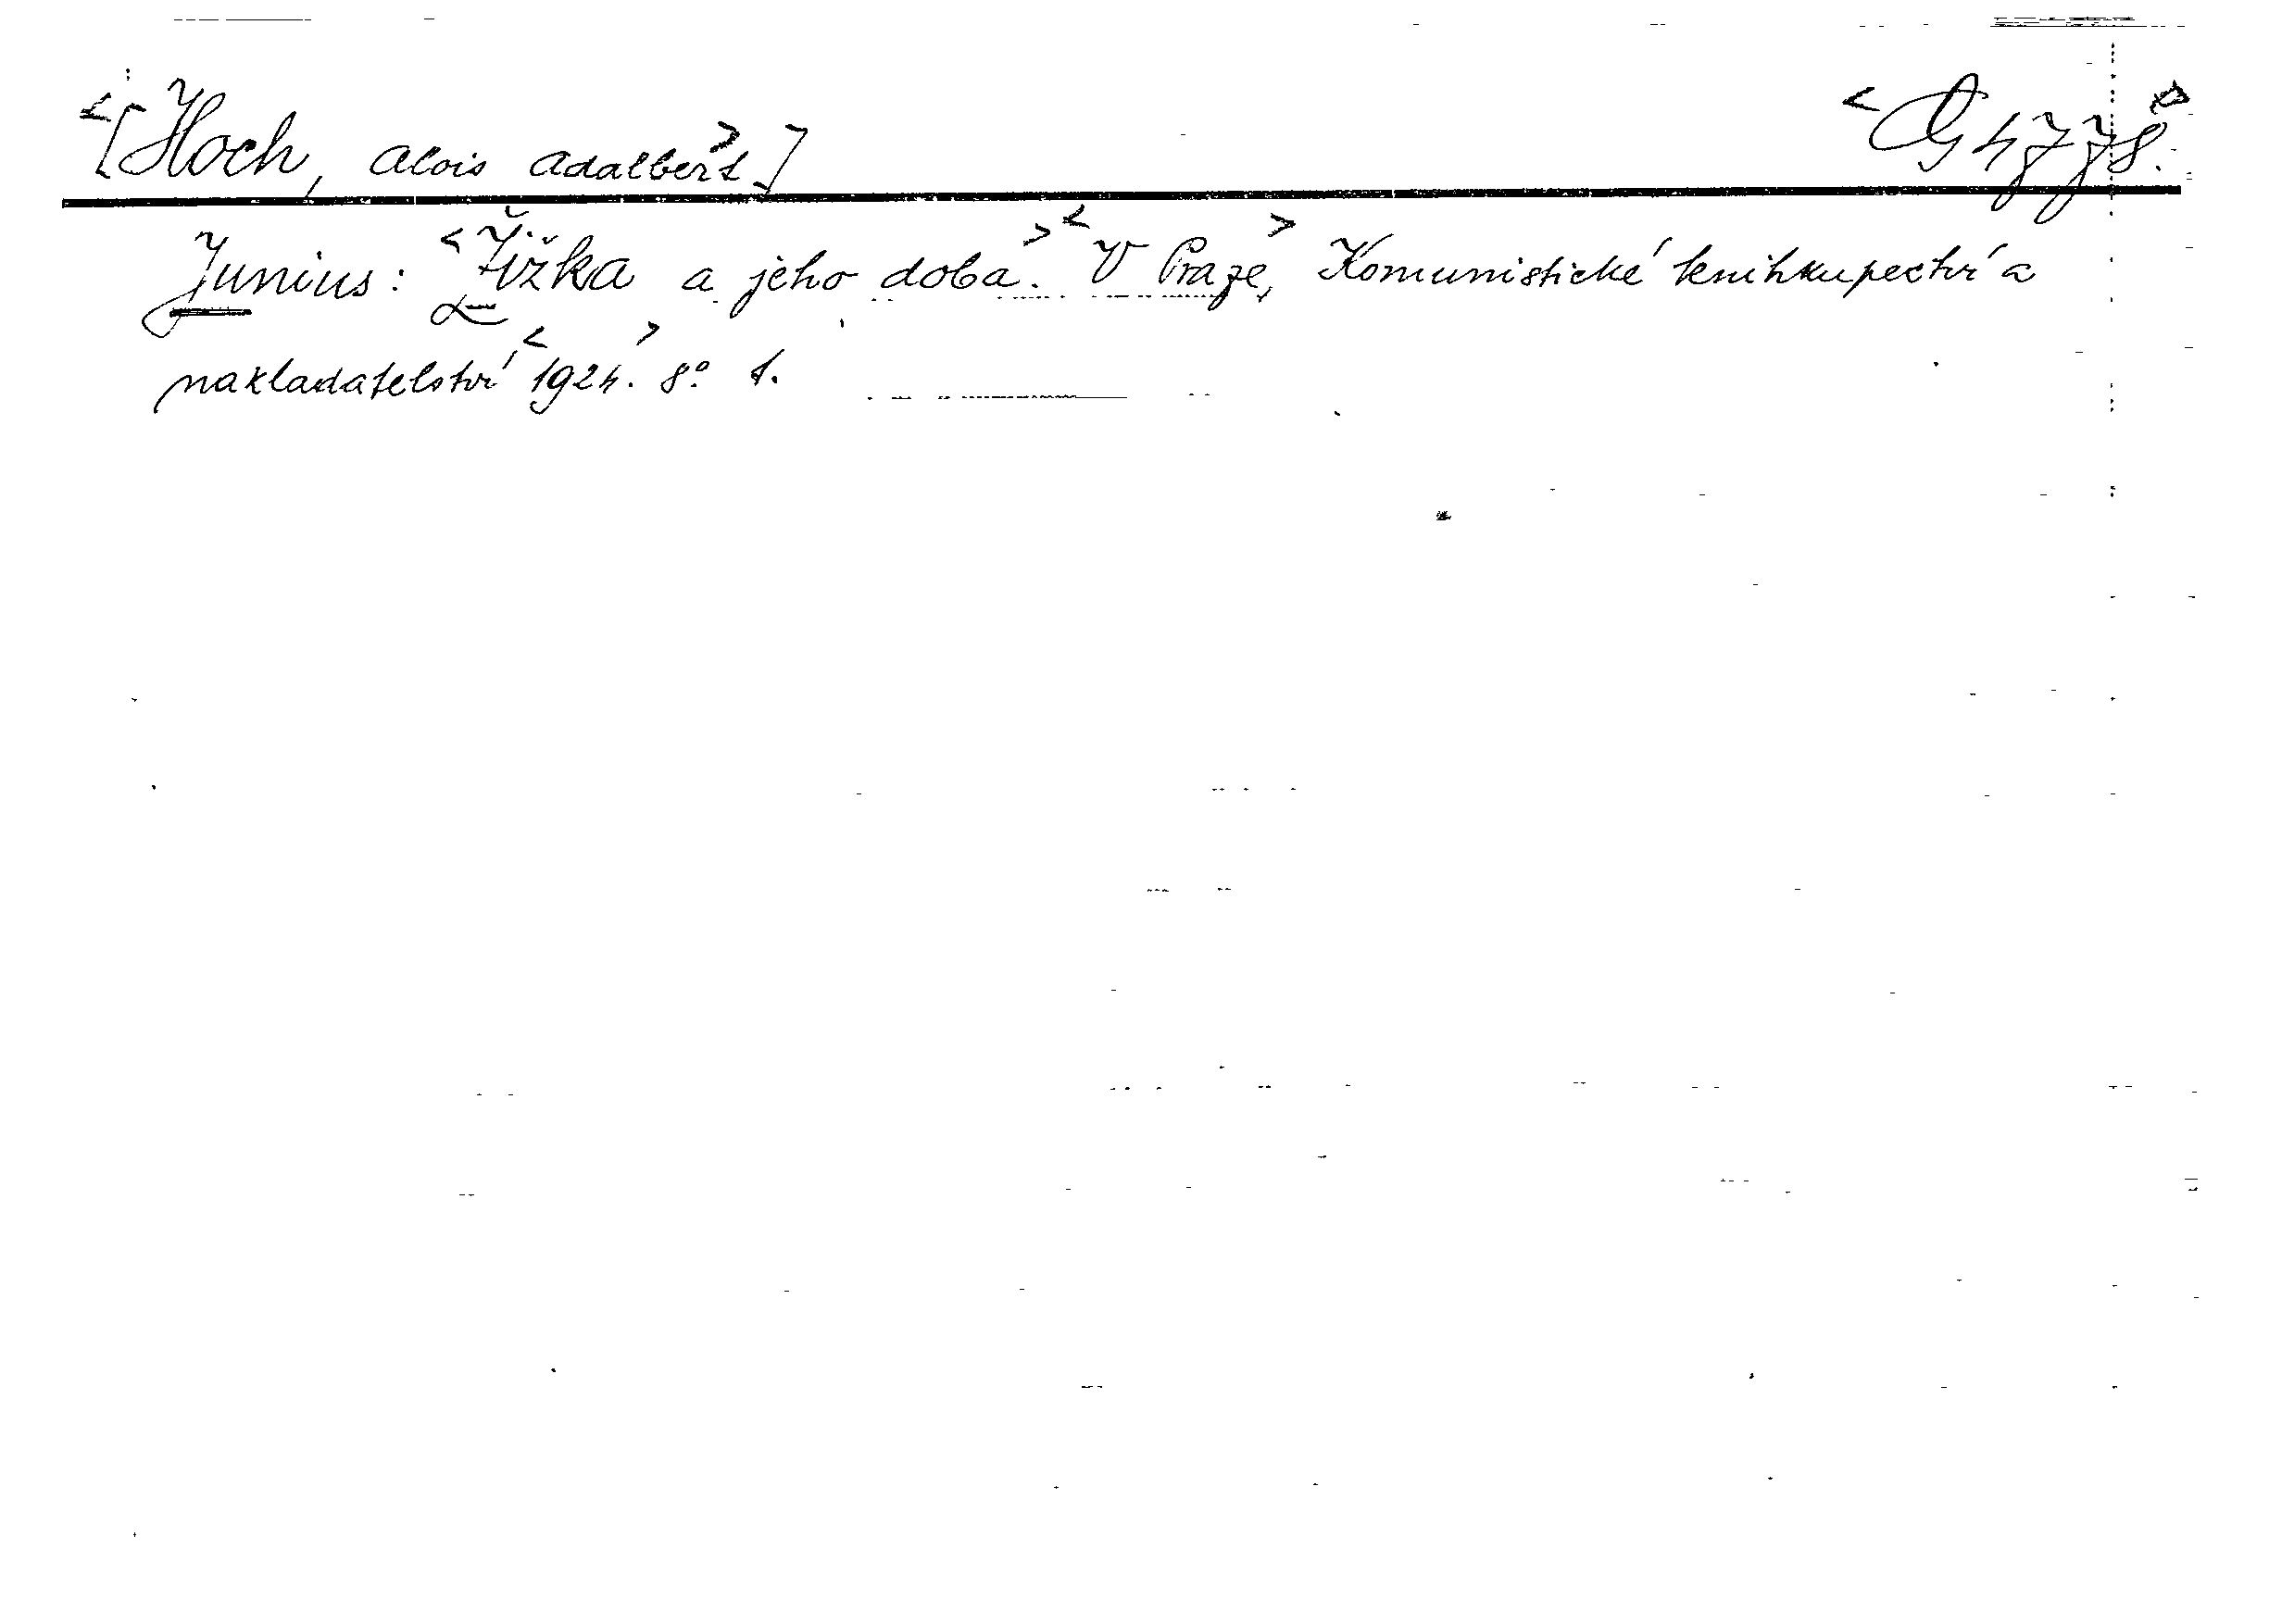 <[Hoch, Alois Adalbert>] <G 4778.>
Junius: <Žižka a jeho doba.> <V Praze,> Komunistické knihkupectví a
nakladatelství <1924.> 8° 1.